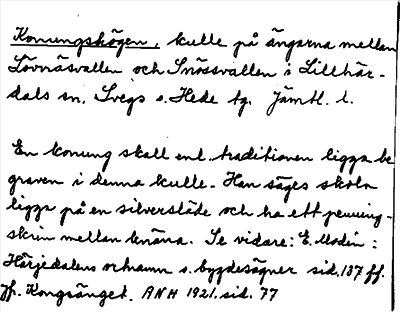 Konungshögen, kulle på ängarna mellan
Lövnäsvallen och Snössvallen i Lillhär-
dals sn, Svegs o. Hede tg. Jämtl. l.
En konung skall enl. traditionen ligga be
graven i denna kulle. Han säges skola
ligga på en silversläde och ha ett penning-
skrin mellan knäna. Se vidare: E. Modin:
Härjedalens ortnamn o. bygdesägner sid. 137 ff.
Jfr. Kongsänget. ANH 1921. sid. 77